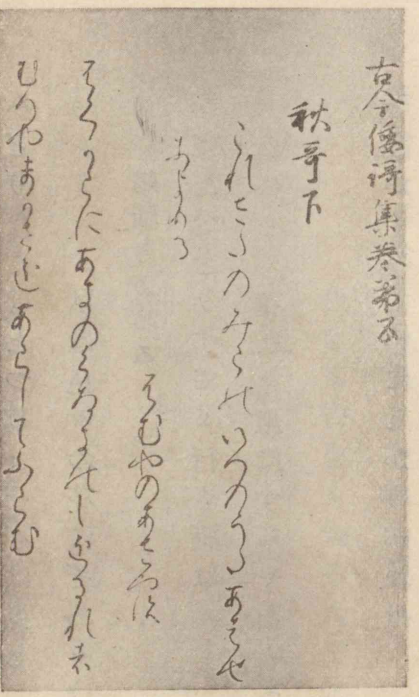 古今倭謌集巻第五
秋哥下
これさたのみこのいへのうたあはせ
によめる
ふむやのあさやす
ふくからにあきのくさきのしをるれは
むへやまかせをあらしといふらむ